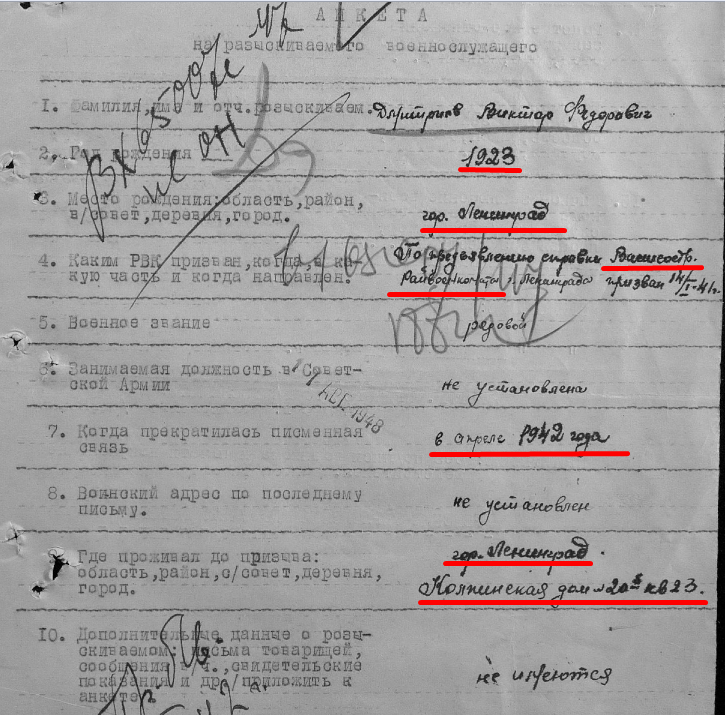 АНКЕТА
на разыскиваемого военнослужащего
вх 6500
не он
1. Фамилия, имя и отч.розыскиваем. Дмитриев Виктор Федорович
2. Год рождения 1923
3. Место рождения:область,район, в/совет,деревня,город. гор. Ленинград
4. Каким РВК призван,когда,в ка-
кую часть и когда направлен. По предъявлению справки Васильостр.
Райвоенкомата г. Ленинграда призван
5. Военное звание рядовой
6. Занимаемая должность в Совет-
ской Армии не установлена
АВГ 1948
7. Когда прекратилась писменная
связь в апреле 1942 года
8. Воинский адрес по последнему
письму. не установлен
Где проживал до призыва: гор. Ленинград
область,район,с/совет,деревня,
город. Колпинская дом № 20 кв 23.
10. Дополнительные данные о розы-
скиваемом: письма товарищей,
сообщения в/ч.,свидетельские
показания и др./приложить к
анкете не имеются